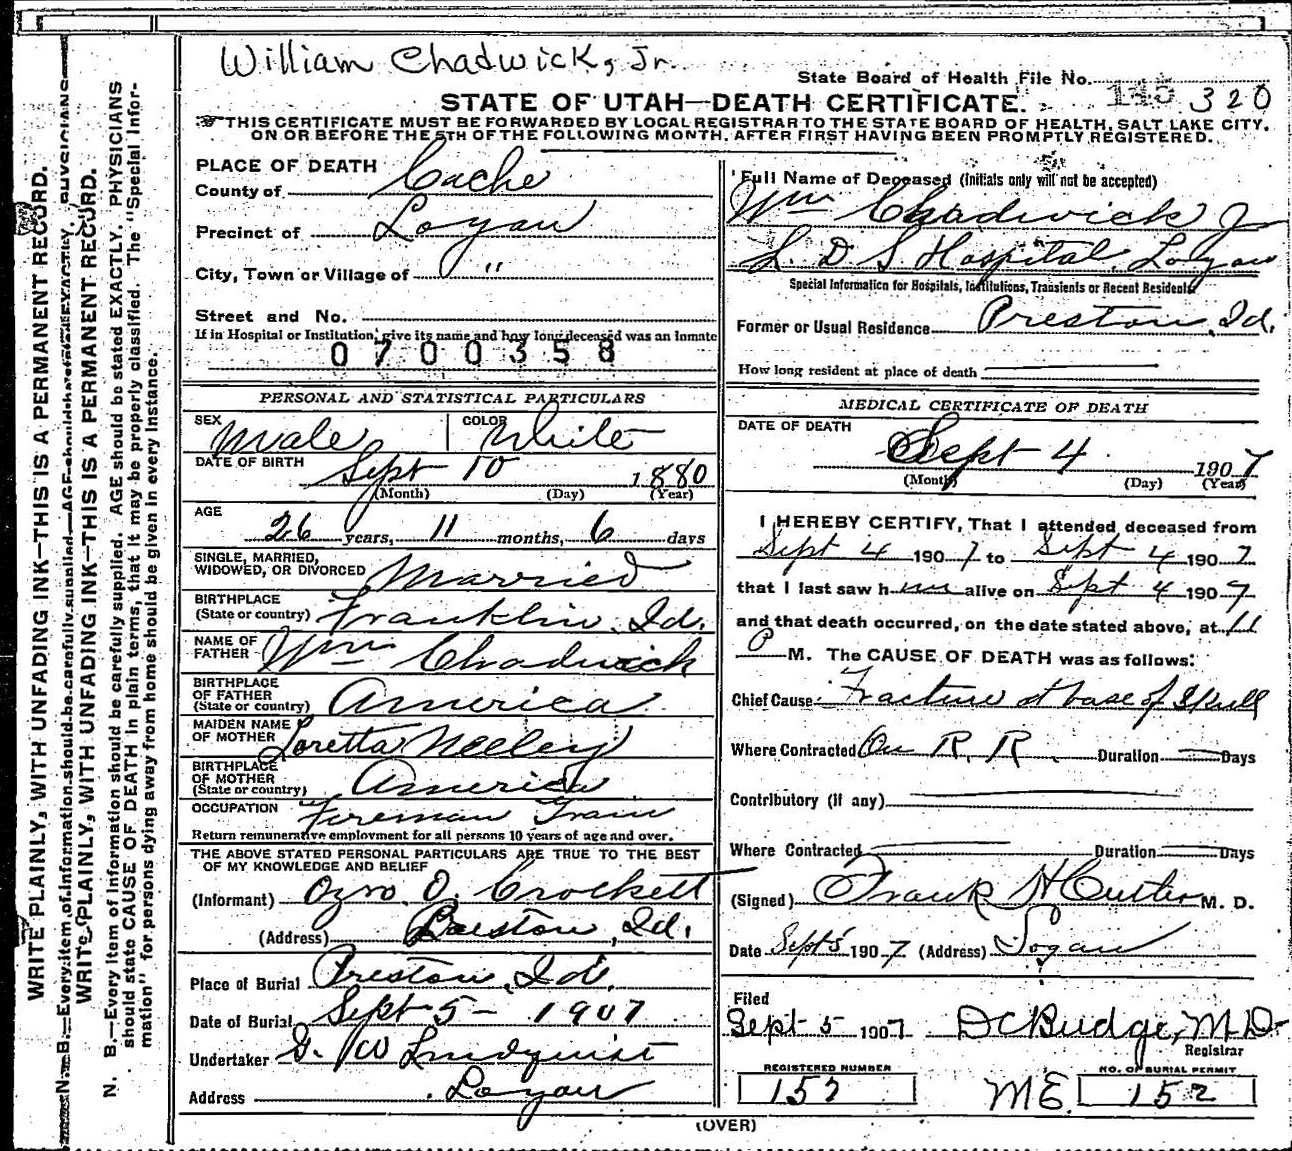 William Chadwick, Jr.
State Board of Health File No. 145 320
STATE OF UTAH—DEATH CERTIFICATE.
THIS CERTIFICATE MUST BE FORWARDED BY LOCAL REGISTRAR TO THE STATE BOARD OF HEALTH, SALT LAKE CITY,
ON OR BEFORE THE 5TH OF THE FOLLOWING MONTH, AFTER FIRST HAVING BEEN PROMPTLY REGISTERED.
PLACE OF DEATH
County of Cache
Precinct of Logan
City, Town or Village of "
Street and No.
If in Hospital or Institution, give its name and how long deceased was an inmate
0700358
PERSONAL AND STATISTICAL PARTICULARS
SEX Male COLOR White
DATE OF BIRTH Sept 10 1880
(Month) (Day) (Year)
AGE
26 years, 11 months, 6 days
SINGLE, MARRIED,
WIDOWED, OR DIVORCED Married
BIRTHPLACE
(State or country) Franklin, Id.
NAME OF
FATHER Wm Chadwick
BIRTHPLACE
OF FATHER
(State or country) America
MAIDEN NAME
OF MOTHER Loretta Neeley
BIRTHPLACE
OF MOTHER
(State or country) America
OCCUPATION Fireman Train
Return remunerative employment for all persons 10 years of age and over.
THE ABOVE STATED PERSONAL PARTICULARS ARE TRUE TO THE BEST
OF MY KNOWLEDGE AND BELIEF
(Informant) Ozro O. Crockett
(Address) Preston, Id.
Place of Burial Preston, Id.
Date of Burial Sept 5 - 1907
Undertaker G. W Lindquist
Address Logan
Full Name of Deceased (Initials only will not be accepted)
Wm Chadwick Jr
L. D S Hospital, Logan
Special Information for Hospitals, Institutions, Transients or Recent Residents
Former or Usual Residence Preston, Id.
How long resident at place of death
MEDICAL CERTIFICATE OF DEATH
DATE OF DEATH
Sept 4 1907
(Month) (Day) (Year)
I HEREBY CERTIFY, That I attended deceased from
Sept 4 1907 to Sept 4 1907
that I last saw h im alive on Sept 4 1907
and that death occurred, on the date stated above, at 11
P M. The CAUSE OF DEATH was as follows:
Chief Cause Fracture at base of Skull
Where Contracted On R. R. Duration Days
Contributory (if any)
Where Contracted Duration Days
(Signed) Frank H Cutler M. D.
Date Sept 5 1907 (Address) Logan
Filed
Sept 5 1907 D C Budge, M. D.
Registrar
REGISTERED NUMBER
152
ME.
NO. OF BURIAL PERMIT
152
(OVER)
WRITE PLAINLY, WITH UNFADING INK—THIS IS A PERMANENT RECORD.
WRITE PLAINLY, WITH UNFADING INK—THIS IS A PERMANENT RECORD.
N. B.—Every item of information should be carefully supplied. AGE should be stated EXACTLY. PHYSICIANS
should state CAUSE OF DEATH in plain terms, that it may be properly classified. The "Special Infor-
mation" for persons dying away from home should be given in every instance.